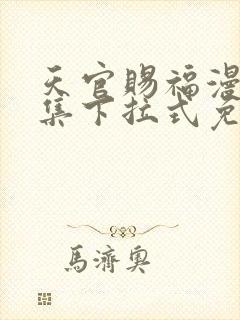 天官賜福漫
集下拉式免
馬濟奧